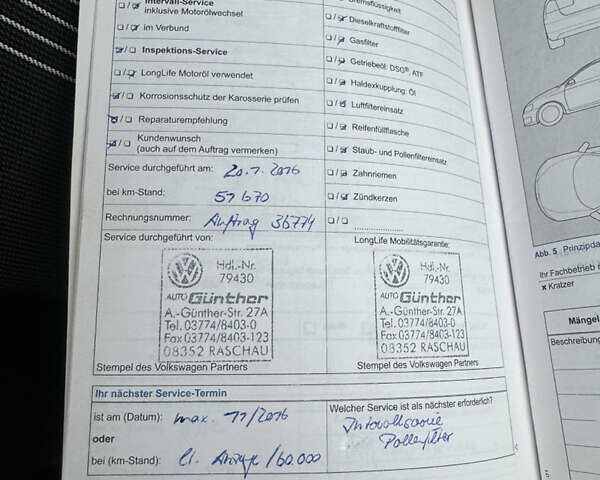 Intervall-Service
inklusive Motorölwechsel
im Verbund
Inspektions-Service
LongLife Motoröl verwendet
Korrosionsschutz der Karosserie prüfen
Reparaturempfehlung
Kundenwunsch
(auch auf dem Auftrag vermerken)
Bremsflüssigkeit
Dieselkraftstofffilter
Gasfilter
Getriebeöl: DSG®, ATF
Haldexkupplung: Öl
Luftfiltereinsatz
Reifenfüllflasche
Staub- und Pollenfiltereinsatz
Zahnriemen
Zündkerzen
Service durchgeführt am: 20.7.2016
bei km-Stand: 57 670
Rechnungsnummer: Auftrag 36774
Service durchgeführt von:
LongLife Mobilitätsgarantie:
Hdl.-Nr.
79430
AUTO Günther
A.-Günther-Str. 27A
Tel. 03774/8403-0
Fax 03774/8403-123
08352 RASCHAU
Stempel des Volkswagen Partners
Hdl.-Nr.
79430
AUTO Günther
A.-Günther-Str. 27A
Tel. 03774/8403-0
Fax 03774/8403-123
08352 RASCHAU
Stempel des Volkswagen Partners
Ihr nächster Service-Termin
ist am (Datum): max. 11/2016
oder
bei (km-Stand): lt. Anzeige /60.000
Welcher Service ist als nächster erforderlich?
Intervallservice
Pollenfilter
Abb. 5 Prinzipda
Ihr Fachbetrieb
x Kratzer
Mängel
Beschreibung